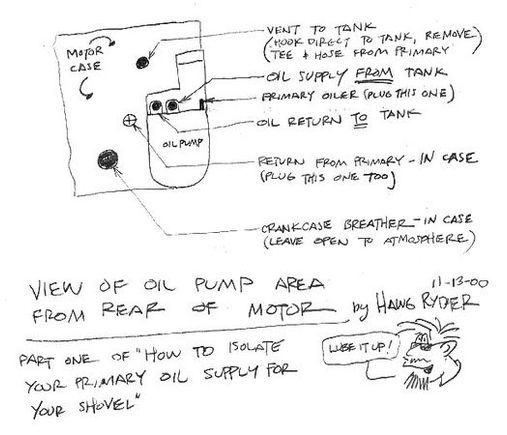 MOTOR
CASE
VENT TO TANK
(HOOK DIRECT TO TANK, REMOVE
TEE & HOSE FROM PRIMARY
OIL SUPPLY FROM TANK
PRIMARY OILER (PLUG THIS ONE)
OIL RETURN TO TANK
OIL PUMP
RETURN FROM PRIMARY - IN CASE
(PLUG THIS ONE TOO)
CRANKCASE BREATHER - IN CASE
(LEAVE OPEN TO ATMOSPHERE)
VIEW OF OIL PUMP AREA
FROM REAR OF MOTOR
11-13-00
by HAWG RYDER
PART ONE OF "HOW TO ISOLATE
YOUR PRIMARY OIL SUPPLY FOR
YOUR SHOVEL"
LUBE IT UP!